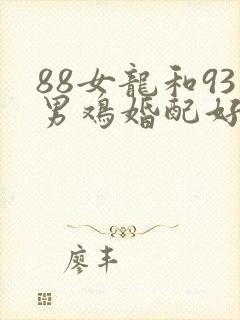 88女龍和93
男鸡婚配好
廖丰